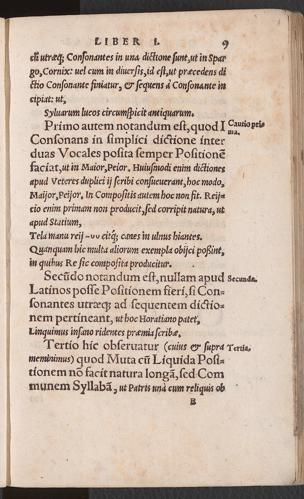 LIBER I. 9
cũ utræq; Consonantes in una dictione sunt, ut in Spar
go, Cornix: uel cum in diuersis, id est, ut præcedens di
ctio Consonante finiatur, & sequens à Consonante in
cipiat: ut,
Syluarum lucos circumspicit antiquarum.
Primo autem notandum est, quod I
Cautio pri
ma.
Consonans in simplici dictione inter
duas Vocales posita semper Positionẽ
faciat, ut in Maior, Peior. Huiusmodi enim dictiones
apud Veteres duplici ij scribi consueuerant, hoc modo,
Maijor, Peijor. In Compositis autem hoc non fit. Reij-
cio enim primam non producit, sed corripit natura, ut
apud Statium,
Tela manu reij -υυ citq́; canes in ulnus hiantes.
Quanquam hic multa aliorum exempla obijci possint,
in quibus Re sic composita producitur.
Secũdo notandum est, nullam apud
Secunda.
Latinos posse Positionem fieri, si Con-
sonantes utræq; ad sequentem dictio-
nem pertineant, ut hoc Horatiano patet,
Linquimus insano ridentes præmia scribæ.
Tertio hic obseruatur (cuius & supra
Tertia.
meminimus) quod Muta cũ Liquida Posi-
tionem nõ facit natura longã, sed Com
munem Syllabã, ut Patris unà cum reliquis ob
B